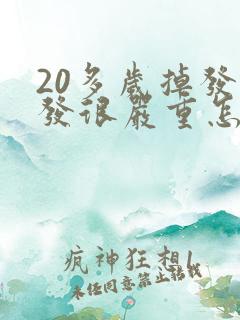 20多歲掉發
發很嚴重怎
疯神狂想1
未经同意禁止转载